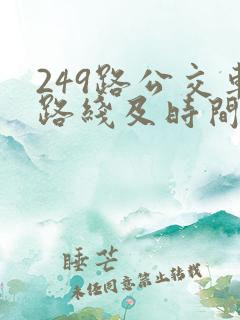 249路公交車
路綫及時間
睡芒
未经同意禁止转载